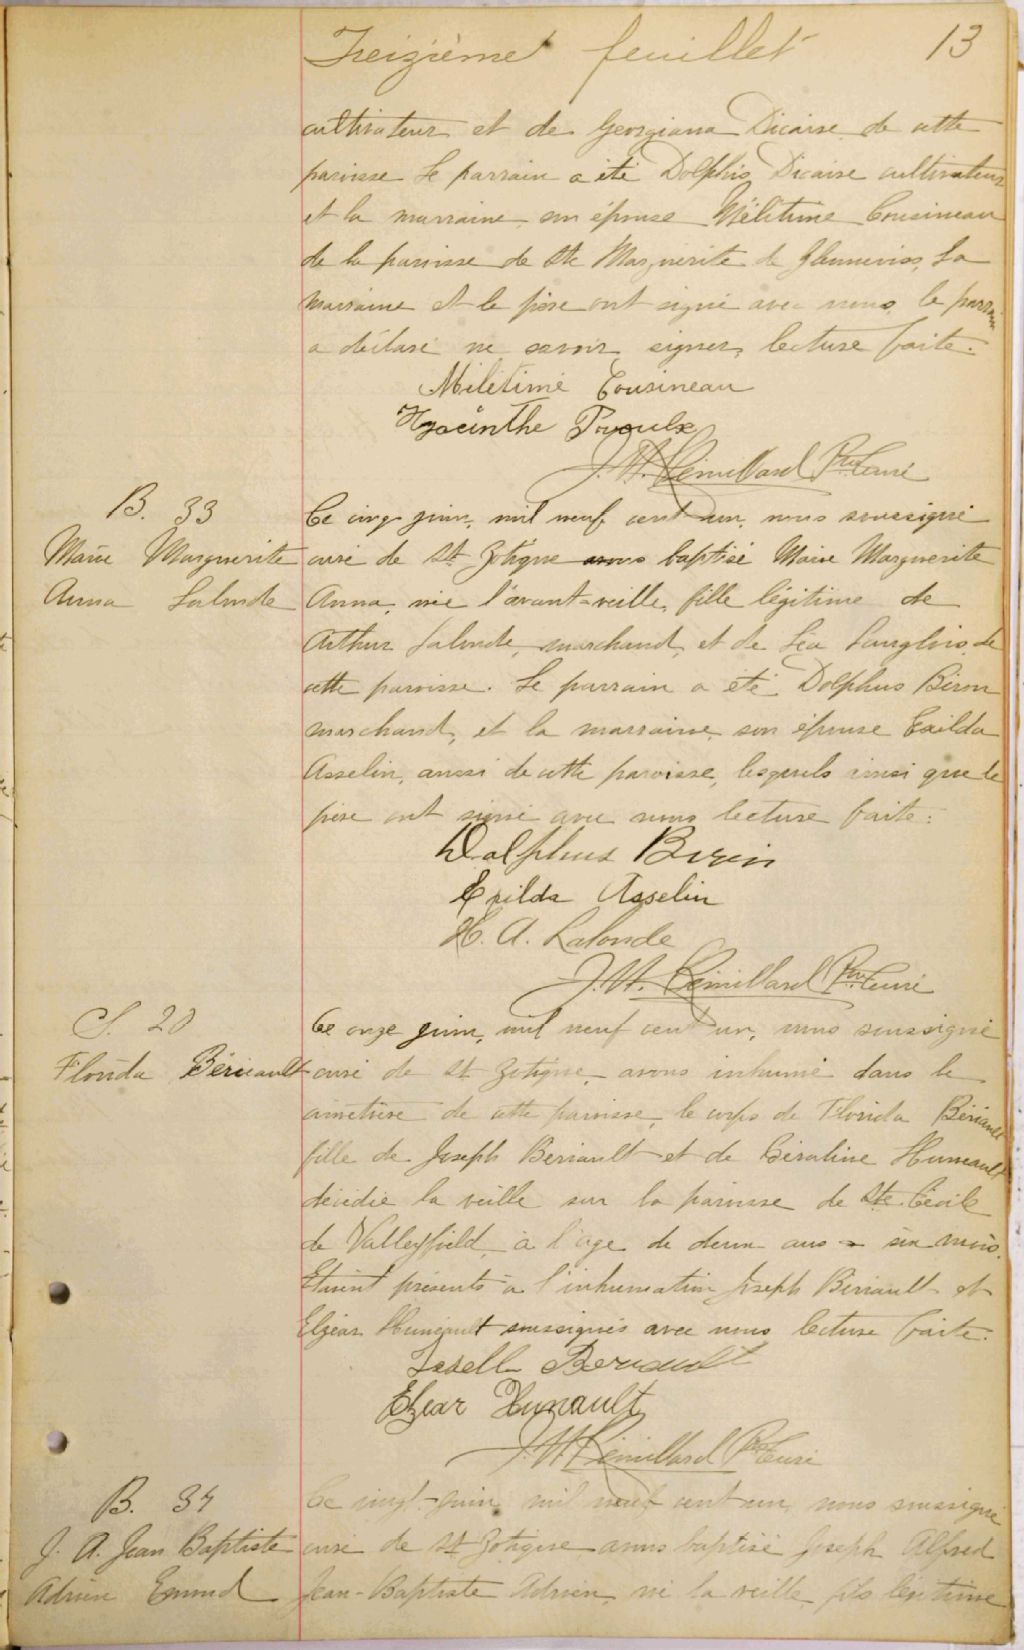 Treizième feuillet 13
cultivateur et de Georgiana Dicaire de cette
paroisse Le parrain a été Dolphis Dicaire cultivateur
et la marraine son épouse Mélitime Cousineau
de la paroisse de Ste Marguerite de La
marraine et le père ont signé avec nous le parrain
a déclaré ne savoir signer, lecture faite.
Militime Cousineau
Hyacinthe Proulx
J. A. Rémillard Ptre Curé
B. 33
Marie Marguerite
Anna Lalonde
Ce cinq juin, mil neuf cent un, nous soussigné
curé de St Zotique avons baptisé Marie Marguerite
Anna, née l'avant-veille, fille légitime de
Arthur Lalonde, marchand, et de Léa Langlois, de
cette paroisse. Le parrain a été Dolphus Biron
marchand, et la marraine, son épouse Exilda
Asselin, aussi de cette paroisse, lesquels ainsi que le
père ont signé avec nous lecture faite.
Dolphus Biron
Exilda Asselin
H. A. Lalonde
J. A. Rémillard Ptre Curé
S. 20
Florida Bériault
Ce onze juin, mil neuf cent un, nous soussigné
curé de St Zotique, avons inhumé dans le
cimetière de cette paroisse, le corps de Florida Bériault
fille de Joseph Bériault et de Géraline Huneault
décédée la veille sur la paroisse de Ste Cécile
de Valleyfield, à l'age de deux ans six mois.
Etaient présents à l'inhumation Joseph Bériault et
Elzéar Huneault soussignés avec nous lecture faite.
Beriault
Elzear Hunault
J. A. Rémillard Ptre Curé
B. 34
J. A. Jean Baptiste
Adrien Emond
Ce vingt-juin mil neuf cent un, nous soussigné
curé de St Zotique avons baptisé Joseph Alfred
Jean-Baptiste Adrien, né la veille, fils légitime